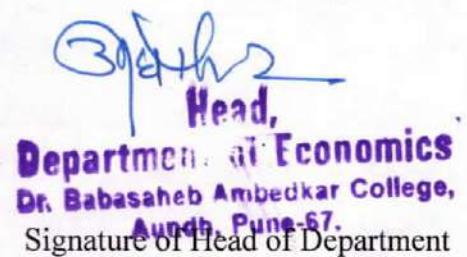 Head,
Department of Economics
Dr. Babasaheb Ambedkar College,
Aundh, Pune-67.
Signature of Head of Department